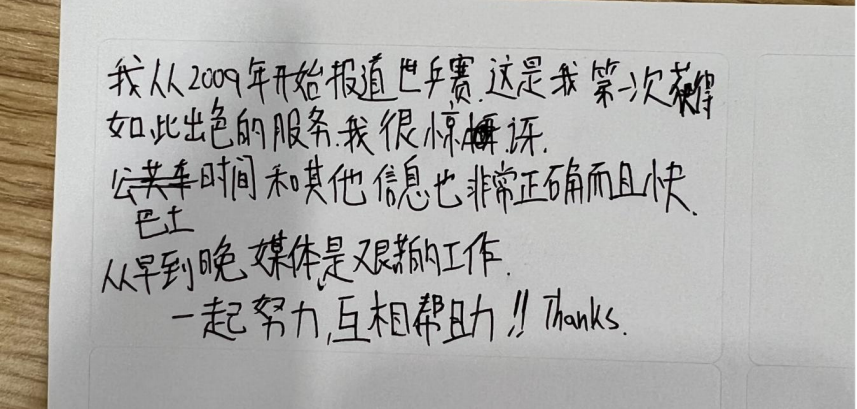 我从2009年开始报道世乒赛.这是我第一次获得
如此出色的服务.我很惊讶.
公共车时间和其他信息也非常正确而且快.
巴士
从早到晚媒体是艰苦的工作.
一起努力,互相帮助!! Thanks.